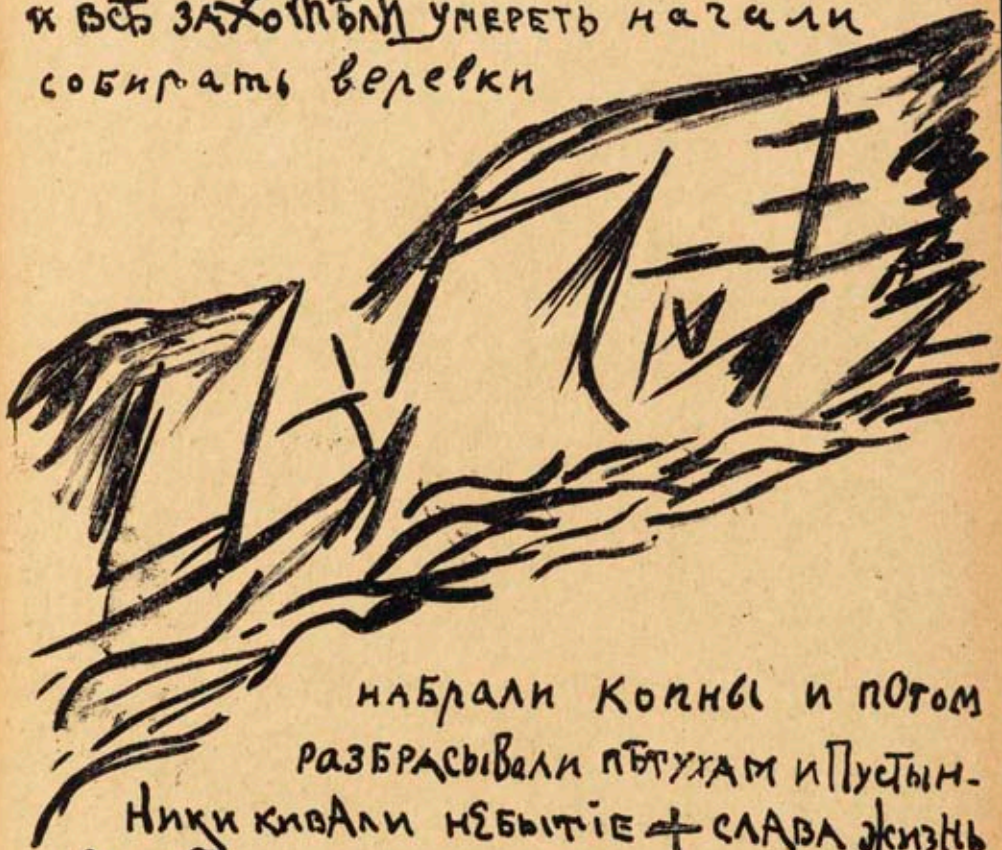 и всѣ захотѣли умереть начали
собирать веревки
набрали копны и потом
разбрасывали пѣтухам и Пустын-
ники кивали небытіе + слава жизнь